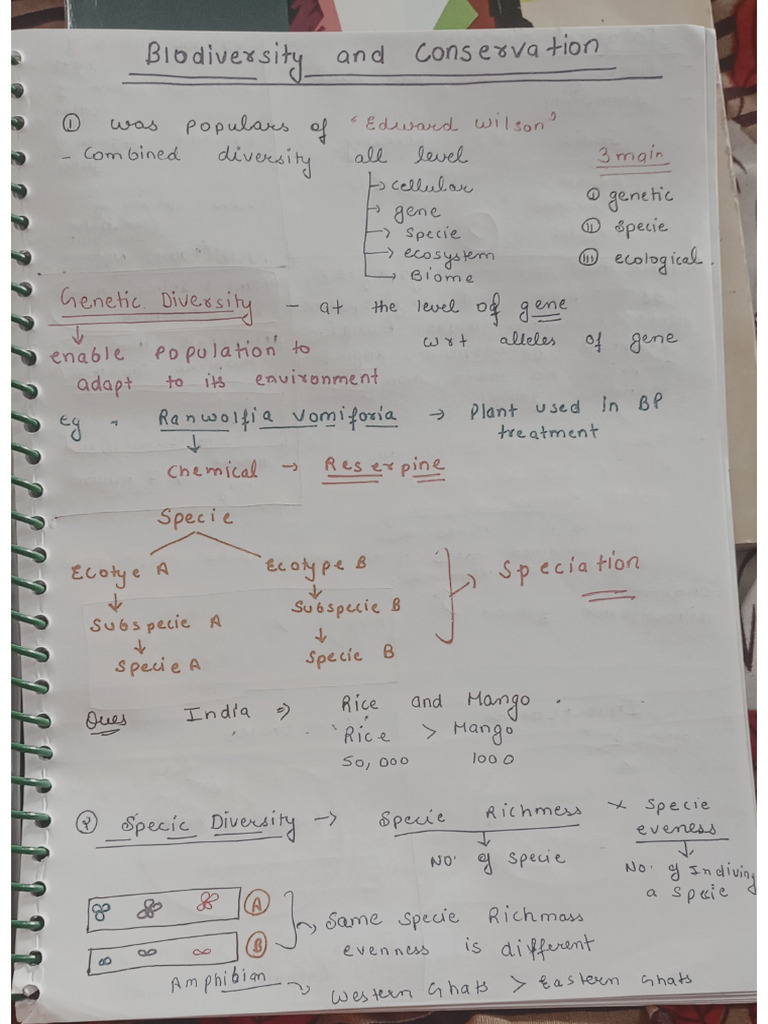 Biodiversity and Conservation
① was populars of "Edward Wilson"
- Combined diversity all level
→ cellular
→ gene
→ specie
→ ecosystem
→ Biome
3 main
ⓘ genetic
ⓘⓘ specie
ⓘⓘⓘ ecological.
Genetic Diversity - at the level of gene
wrt alleles of gene
↓
enable 'population' to
adapt to its environment
eg - Ranwolfia vomiforia → Plant used in BP
treatment
↓
chemical → Reserpine
Specie
Ecotye A Ecotype B
↓ ↓
Subspecie A Subspecie B
↓ ↓
Specie A Specie B
Speciation
Ques India ⇒ Rice and Mango .
Rice > Mango
50,000 1000
② Specic Diversity → Specie Richmess × Specie
eveness
↓ ↓
No. of Specie No. of Indiving
a Specie
A
B
Same Specie Richmass
evenness is different
Amphibian
Western Ghats > Eastern Ghats